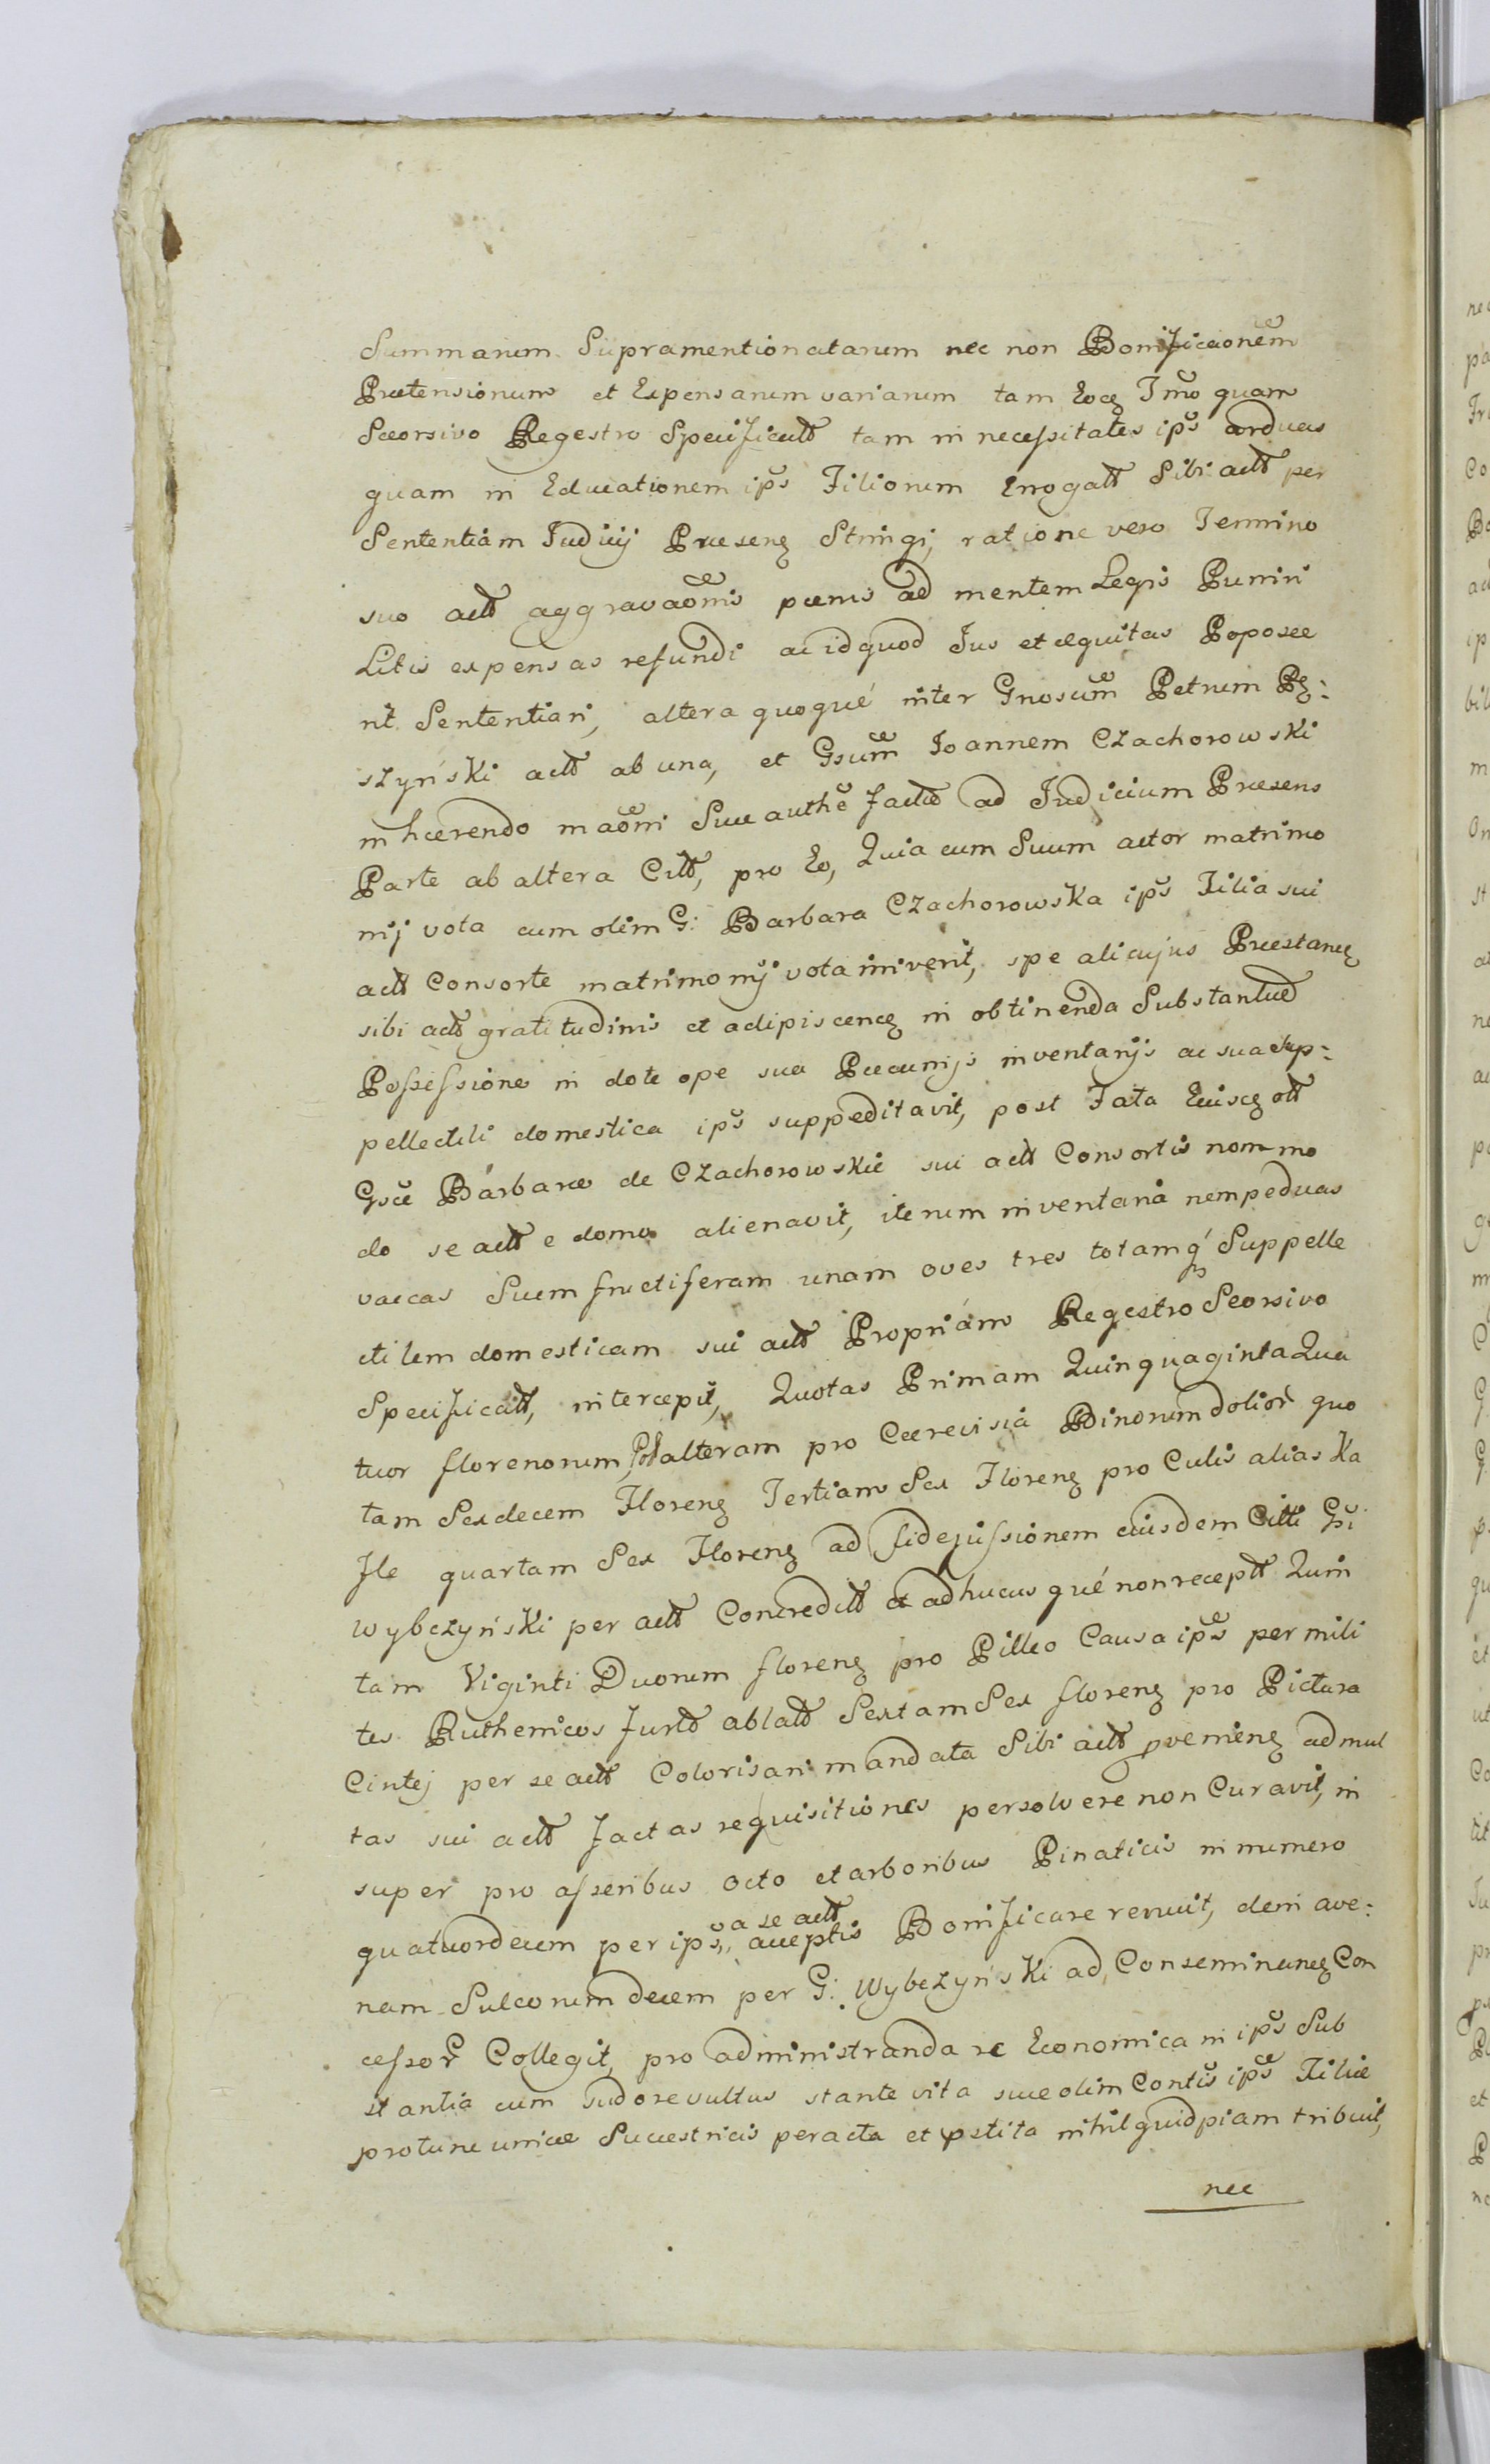 Summarum Supramentionatarum nec non Bonificaõnem
Prætensionum et Expensarum variarum tam Eocz Tm̃o quam
Seorsivo Regestro Specificatt tam in necessitates ip̃s arduas
quam in Educationem ip̃s Filiorum Erogatt Sibi actt per
Sententiam Judicij Præsenz Stringi, ratione vero Termino
suo actt aggravaõnis pænis ad mentem Legis Puniri
Litis expensas refundi ac id quod Jus et æquitas Poposce
rit Sententiari, altera quoqué inter Gnosum̃ Petrum Pę:
szyński actt ab una, et Gsum̃ Joannem Czachorowski
inhærendo maõni Suæ authẽ factæ ad Judicium Præsens
Parte ab altera Citt, pro Eo, Quia cum Suum actor matrimo
nij vota cum olim G: Barbara Czachorowska ip̃s Filia sui
actt Consorte matrimonij vota iniverit, spe alicujus Præstancz
sibi actt gratitudinis et adipiscencz in obtinenda Substantiæ
Possessione in dote ope sua Pecunijs inventarijs ac sua sup:
pellectili domestica ip̃s suppeditavit, post Fata Eiuscz ott
Gsæ Bárbaræ de Czachorowskie sui actt Consortis nonmo
do se actt e domo alienavit, iterum inventaria nempe duas
vaccas Suem fructiferam unam oves tres totamq́ Suppelle
ctilem domesticam sui actt Propriám Regestro Seorsivo
Specificatt, intercepit, Quotas Primam Quinquaginta Qua
tuor florenorum, alteram pro Cerevisia Binorum dolior̃ quo
tam Sexdecem Florenz Tertiam Sex Florenz pro Culis alias Ka
fle quartam Sex Florenz ad fidejussionem ejusdem Citti Gsi
Wybczyński per actt Concreditt et adhucusqué non receptt Quin
tam Viginti Duorum florenz pro Pilleo Causa ip̃s per mili
tes Ruthenicos furtt ablatt Sextam Sex florenz pro Pictura
Cintej per se actt Colorisari mandata Sibi actt pvenienz ad mul
tas sui actt factas requisitiones persolvere non Curavit, in
super pro asseribus octo et arboribus Pinaticis in numero
quatuordecem per ip̃s, a se actt acceptis Bonificare renuit, dein ave:
nam Sulcorum decem per G: Wybczyński ad Conseminancz Con
cessor̃ Collegit, pro administranda re Economica in ip̃s Sub
stantia cum sudore vultus stante vita suæ olim Contis ip̃s Filiæ
protunc unicæ Sucestricis peracta et pstita nihil quidpiam tribuit,
nec